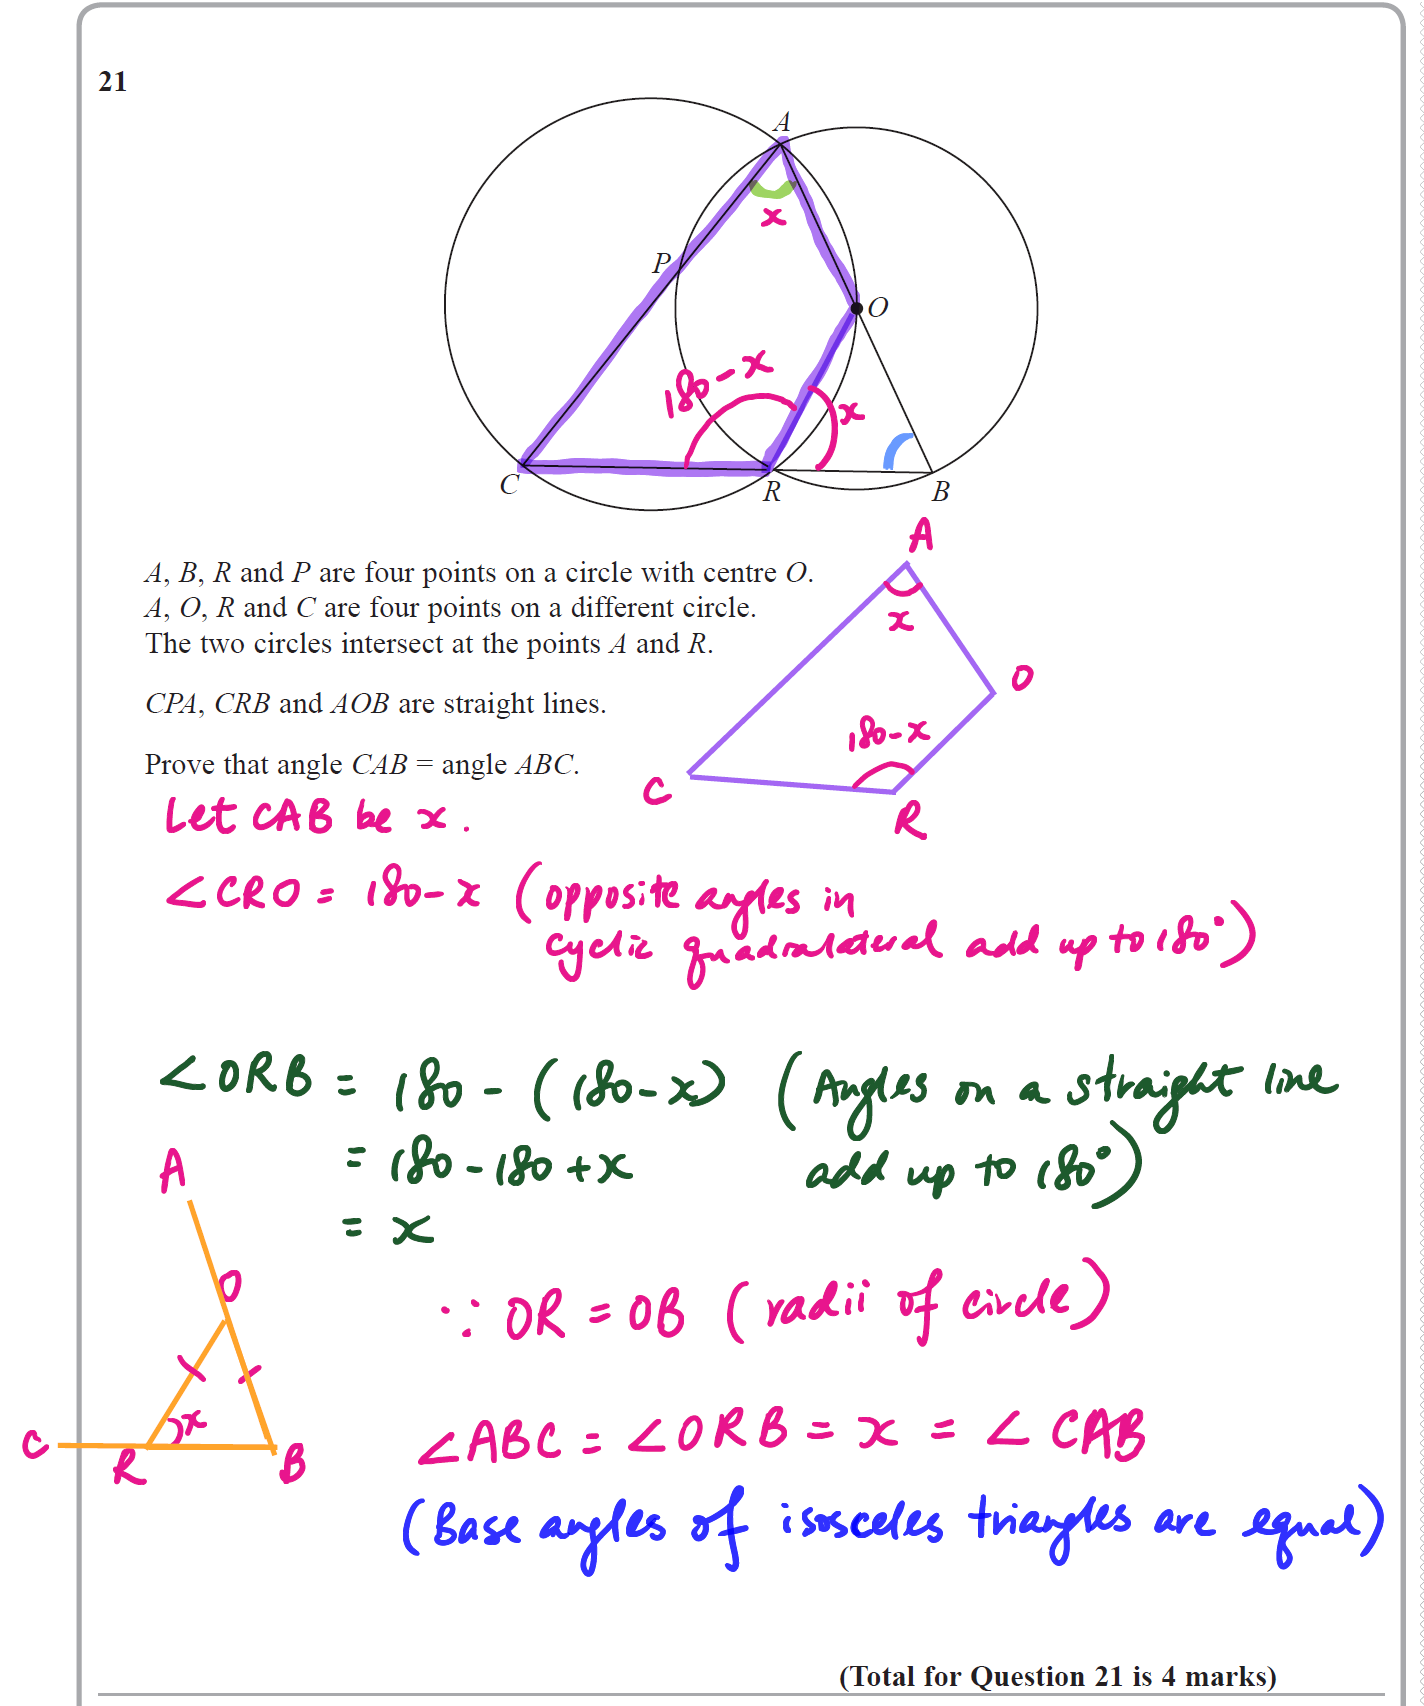 21
A
x
P
O
180-x
x
C
R
B
A, B, R and P are four points on a circle with centre O.
A, O, R and C are four points on a different circle.
The two circles intersect at the points A and R.
CPA, CRB and AOB are straight lines.
Prove that angle CAB = angle ABC.
A
x
O
180-x
C
R
Let CAB be x.
∠CRO = 180-x (opposite angles in
cyclic quadralateral add up to 180°)
∠ORB = 180 - (180-x) (Angles on a straight line
= 180-180+x add up to 180°)
= x
A
O
x
C
R
B
∵ OR = OB (radii of circle)
∠ABC = ∠ORB = x = ∠CAB
(Base angles of isosceles triangles are equal)
(Total for Question 21 is 4 marks)